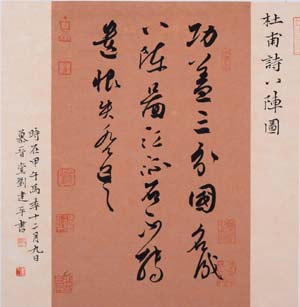 杜甫詩八陣圖
功蓋三分國名成
八陣圖江流石不轉
遺恨失吞吳
時在甲午馬年十二月九日
慕晉堂劉建平書